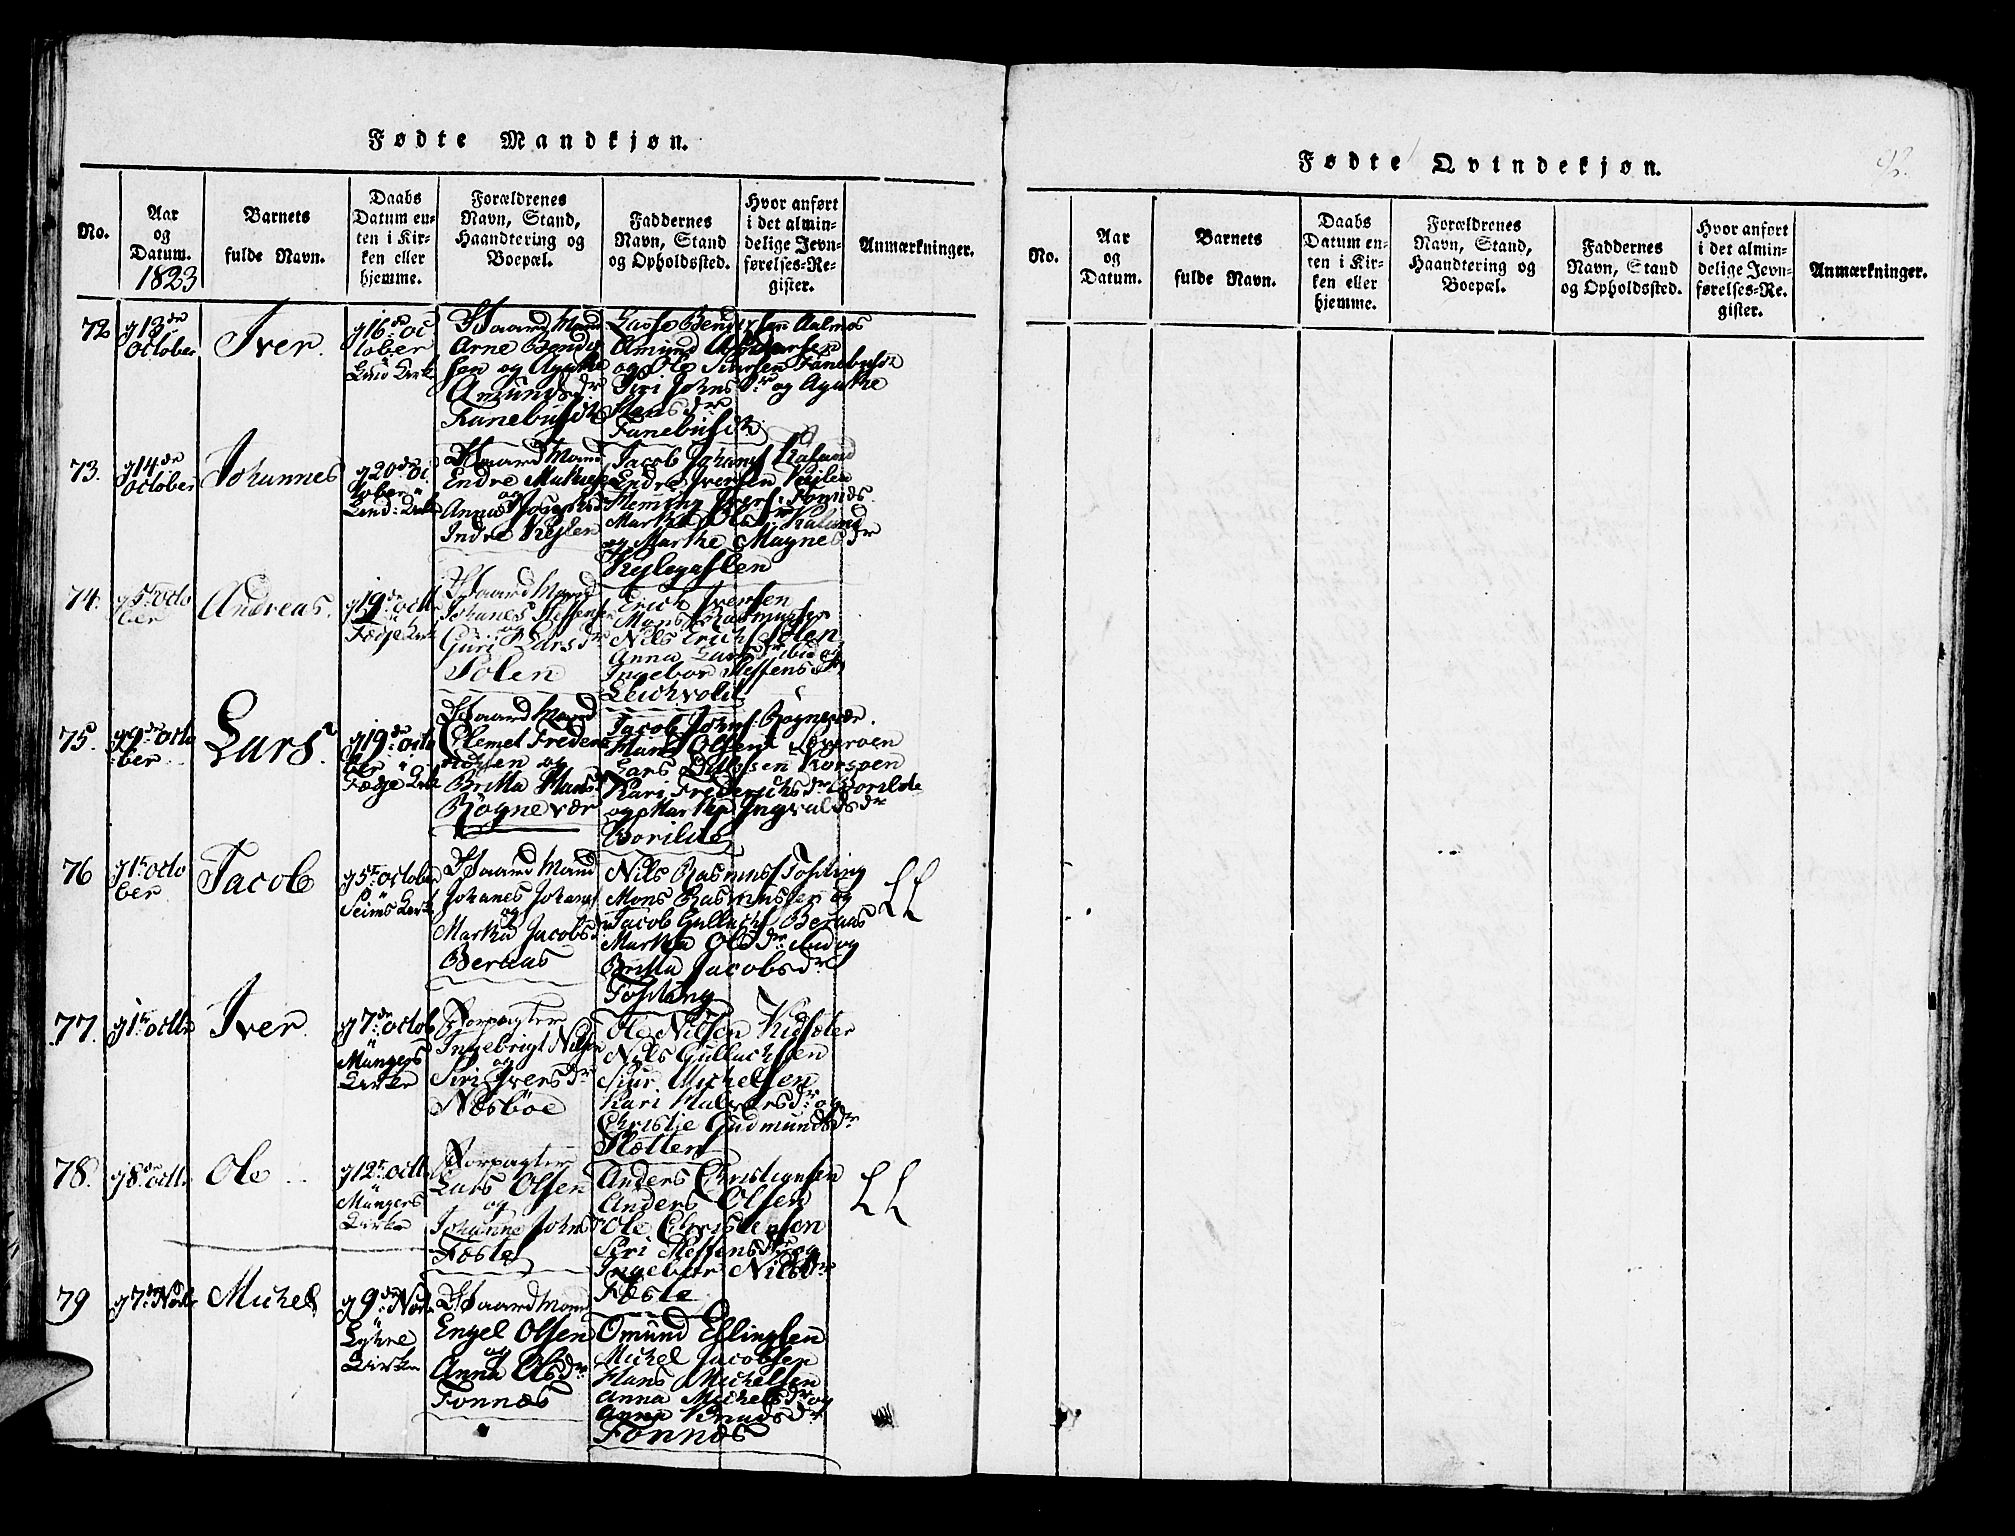 Fødte Mandkjøn.
No.
Aar
og
Datum.
1823
Barnets
fulde Navn.
Daabs
Datum en-
ten i Kir-
ken eller
hjemme.
Forældrenes
Navn, Stand,
Haandtering og
Boepæl.
Faddernes
Navn, Stand
og Opholdssted.
Hvor anført
i det almin-
delige Jevn-
førelses-Re-
gister.
Anmærkninger.
72
October
Iver.
g16de Oc
tober
Lind Kirke
Gaard Mand
Arne Bendix
sen og Agathe
Amunds dr
Fanebust
Lasse Bendixsen Aalmos
Amund
og Ole Fanebust
Siri Johns dr og Agathe
dr
Fanebust
73.
g14de
October
Johannes
g20de Oc
tober
Lind Kirke
Gaard Mand
Endre
og
Anna Josephsd
Indre Kejlen
Jacob Johans Kaland
Endre Iversen Kejlen
Flemming Ivers Fonnes
Martha Ols dr Kaland
og Marthe Magnes dr
74.
g5te Octo
ber
Andreas.
g19de Octb
Fedje Kirke
Gaard Mand
Johanes Steffensen
og
Guri Lars dr
Solen
Erich Iversen
Mons Rasmussen
Nils Erichs Solen
Anna Lars dr ibid og
Ingebor Steffens dr
75.
g9de Octo
ber
Lars.
g19de Octo
ber
Fedje Kirke
Gaard Mand
Clemet Frede
richsen og
Britha Hans
Rognevær
Jacob Johns Rognevær.
Hans Olsen
Lars
Kari Frederichs dr Borilde
og Martha Ingvalds dr
Borilde
76
g1te Octo
ber
Jacob
g5te October
Seims Kirke
Gaard Mand
Johanes Johans
og
Martha Jacobs d
Beraas
Nils Rasmus Fosting
Mons Rasmussen og
Jacob Gullachs Beraas
Martha Ols dr ibid og
Britha Jacobs dr
Fosting
LL
77.
g1te Octbr
Iver
g7de Octob
Mangers
Kirke
Forpagter
Ingebrigt Nilsen
og
Siri Ivers dr
Næsböe
Ole Nilsen
Nils Gullachsen
Siur Michelsen
Kari Halvors dr og
Christie Gudmunds dr
Sletten
78.
g8de Octbr
Ole
g12te Octb
Mangers
Kirke
Forpagter
Lars Olsen
og
Johanne Johns
Fæste
Anders Christiansen
Anders Olsen
Ole Christensen
Siri Steffens dr og
Ingebor Nils dr
Fæste
LL
79
g7de Novbr
Michel
g9de Novb
Kirke
Gaard Mand
Engel Olsen
og
Anna Ols dr
Fonnæs
Omund Ellingsen
Michel Jacobsen
Hans Michelsen
Anna Michels dr og
Anna Knuds dr
Fonnæs
Fødte Qvindekjøn.
92.
No.
Aar
og
Datum.
Barnets
fulde Navn.
Daabs
Datum en-
ten i Kir-
ken eller
hjemme.
Forældrenes
Navn, Stand,
Haandtering og
Boepæl.
Faddernes
Navn, Stand
og Opholdssted.
Hvor anført
i det almin-
delige Jevn-
førelses-Re-
gister.
Anmærkninger.